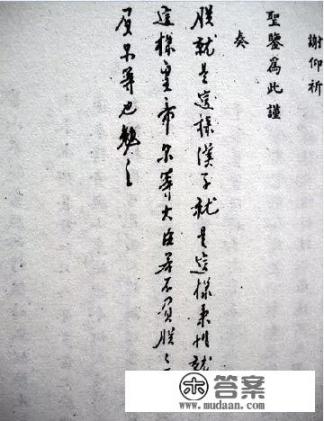 謝仰祈
聖鑒為此謹
奏
朕就是這樣漢子就是這樣秉性就
這樣皇帝尓等大臣若不負朕朕
再不負尓等也勉之
答案
www.mudaan.com